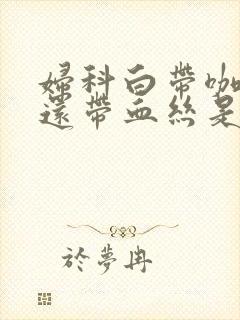 婦科白帶咖
還帶血絲是
於夢冉